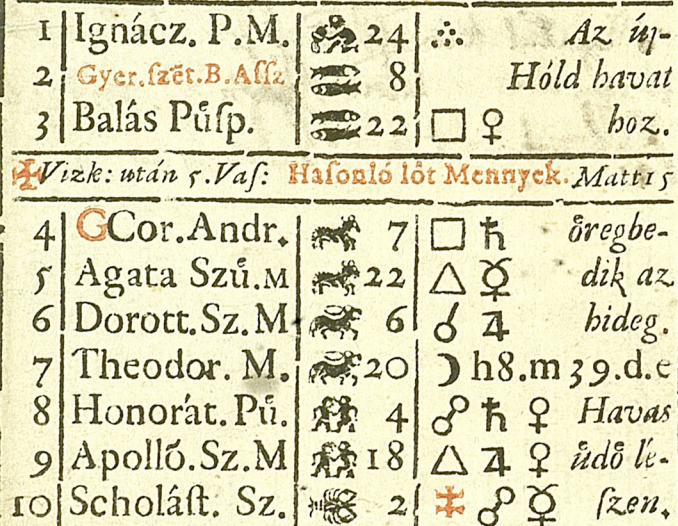 1 Ignácz. P.M. ♓ 24 ஃ Az új-
2 Gyer.ſzēt.B.Aſſz ♓ 8 Hóld havat
3 Balás Půſp. ♓ 22 □ ♀ hoz.
✠ Vizk: után 5. Vaſ: Haſonló lôt Mennyek. Matt 15
4 G Cor. Andr. ♈ 7 □ ♄ ŏregbe-
5 Agata Szů. M ♈ 22 △ ☿ dik az
6 Dorott. Sz. M ♉ 6 ☌ ♃ hideg.
7 Theodor. M. ♉ 20 ☽ h8.m 39.d.e
8 Honorát. Pů. ♊ 4 ☍ ♄ ♀ Havas
9 Apolló. Sz. M ♊ 18 △ ♃ ♀ ůdŏ lé-
10 Scholáſt. Sz. ♋ 2 ☍ ☿ ſzen.